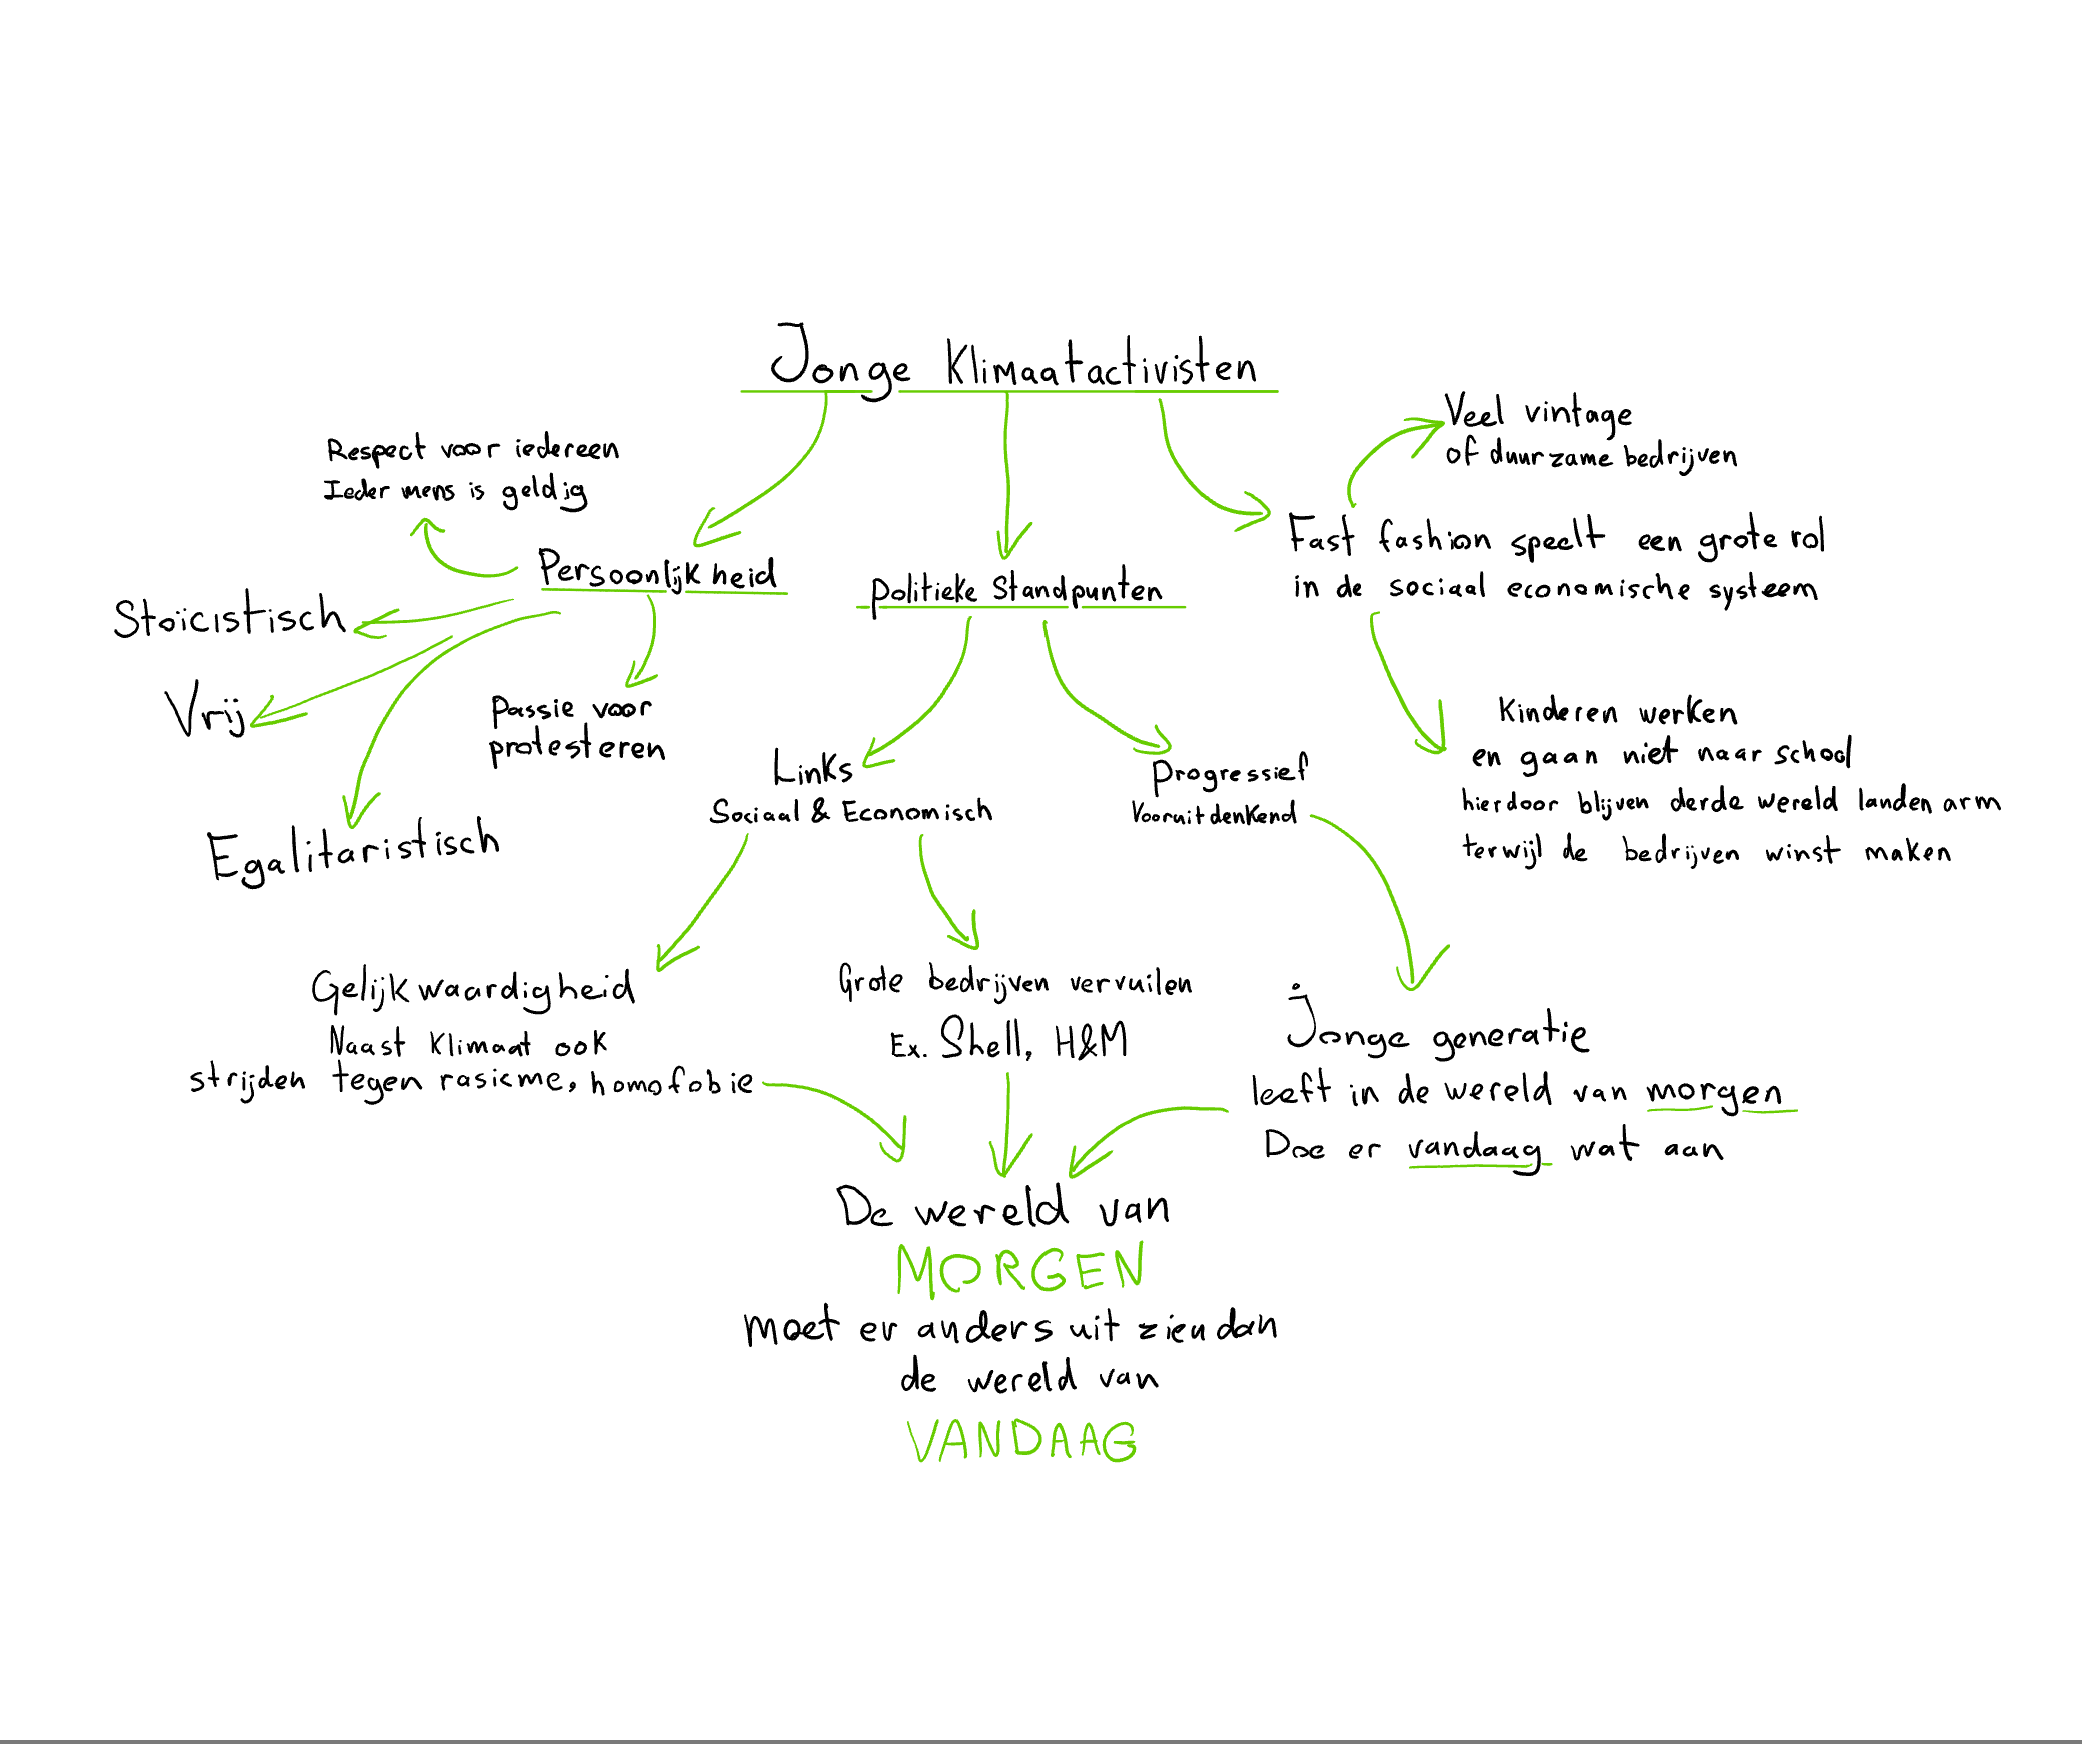 Jonge Klimaatactivisten
Respect voor iedereen
Ieder mens is geldig
Persoonlijkheid
Stoïcistisch
Vrij
Egalitaristisch
Passie voor
protesteren
Politieke Standpunten
Links
Sociaal & Economisch
Progressief
Vooruitdenkend
Veel vintage
of duurzame bedrijven
Fast fashion speelt een grote rol
in de sociaal economische systeem
Kinderen werken
en gaan niet naar school
hierdoor blijven derde wereld landen arm
terwijl de bedrijven winst maken
Gelijkwaardigheid
Naast Klimaat ook
strijden tegen rasicme, homofobie
Grote bedrijven vervuilen
Ex. Shell, H&M
Jonge generatie
leeft in de wereld van morgen
Doe er vandaag wat aan
De wereld van
MORGEN
moet er anders uit zien dan
de wereld van
VANDAAG